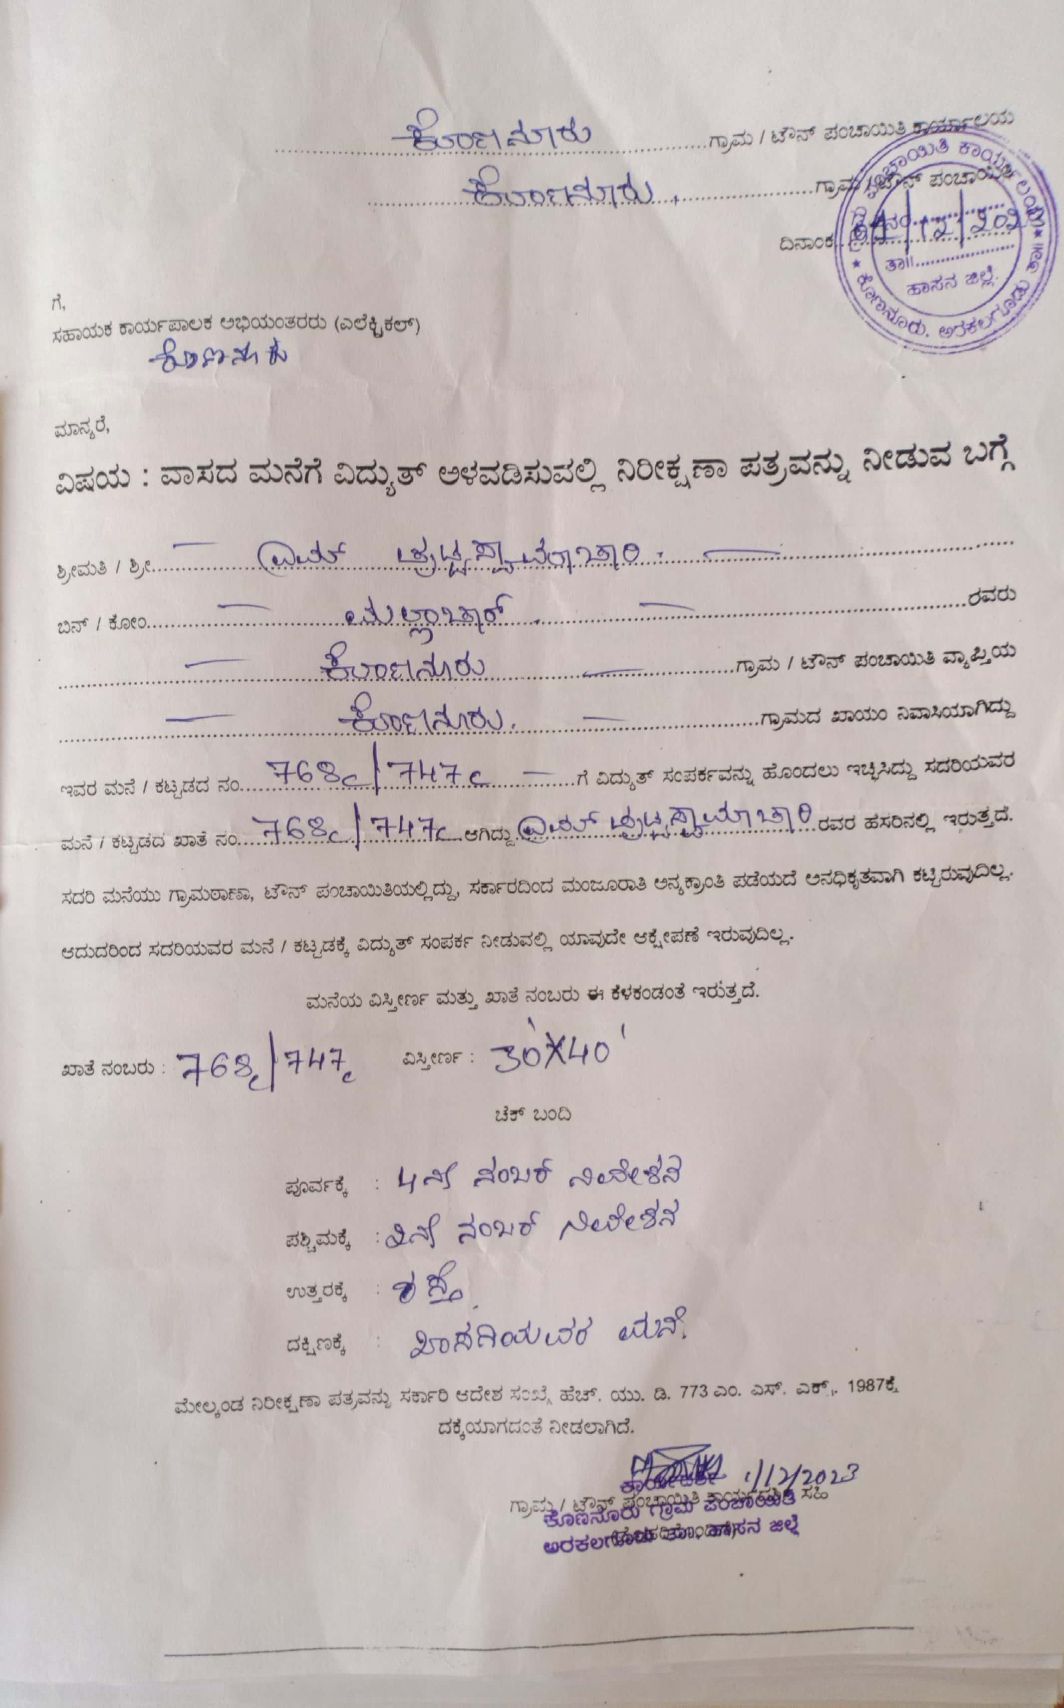 ಕೊಣನೂರು ಗ್ರಾಮ / ಟೌನ್ ಪಂಚಾಯಿತಿ ಕಾರ್ಯಾಲಯ
ಕೊಣನೂರು. ಗ್ರಾಮ / ಟೌನ್ ಪಂಚಾಯಿತಿ
ದಿನಾಂಕ
ತಾ||
ಹಾಸನ ಜಿಲ್ಲೆ.
ಕೊಣನೂರು. ಅರಕಲಗೂಡು ತಾ||
ಗೆ,
ಸಹಾಯಕ ಕಾರ್ಯಪಾಲಕ ಅಭಿಯಂತರರು (ಎಲೆಕ್ಟ್ರಿಕಲ್)
ಕೊಣನೂರು
ಮಾನ್ಯರೆ,
ವಿಷಯ : ವಾಸದ ಮನೆಗೆ ವಿದ್ಯುತ್ ಅಳವಡಿಸುವಲ್ಲಿ ನಿರೀಕ್ಷಣಾ ಪತ್ರವನ್ನು ನೀಡುವ ಬಗ್ಗೆ
ಶ್ರೀಮತಿ / ಶ್ರೀ. ಎಮ್ ಪುಟ್ಟಸ್ವಾಮಾಚಾರಿ.
ಬಿನ್ / ಕೋಂ. ಮಲ್ಲಾಚಾರ್. ರವರು
ಕೊಣನೂರು ಗ್ರಾಮ / ಟೌನ್ ಪಂಚಾಯಿತಿ ವ್ಯಾಪ್ತಿಯ
ಕೊಣನೂರು. ಗ್ರಾಮದ ಖಾಯಂ ನಿವಾಸಿಯಾಗಿದ್ದು
ಇವರ ಮನೆ / ಕಟ್ಟಡದ ನಂ. 768c/747c ಗೆ ವಿದ್ಯುತ್ ಸಂಪರ್ಕವನ್ನು ಹೊಂದಲು ಇಚ್ಛಿಸಿದ್ದು ಸದರಿಯವರ
ಮನೆ / ಕಟ್ಟಡದ ಖಾತೆ ನಂ. 768c/747c ಆಗಿದ್ದು ಎಮ್ ಪುಟ್ಟಸ್ವಾಮಾಚಾರಿ ರವರ ಹಸರಿನಲ್ಲಿ ಇರುತ್ತದೆ.
ಸದರಿ ಮನೆಯು ಗ್ರಾಮಠಾಣಾ, ಟೌನ್ ಪಂಚಾಯಿತಿಯಲ್ಲಿದ್ದು, ಸರ್ಕಾರದಿಂದ ಮಂಜೂರಾತಿ ಅನ್ಯಕ್ರಾಂತಿ ಪಡೆಯದೆ ಅನಧಿಕೃತವಾಗಿ ಕಟ್ಟಿರುವುದಿಲ್ಲ.
ಆದುದರಿಂದ ಸದರಿಯವರ ಮನೆ / ಕಟ್ಟಡಕ್ಕೆ ವಿದ್ಯುತ್ ಸಂಪರ್ಕ ನೀಡುವಲ್ಲಿ ಯಾವುದೇ ಆಕ್ಷೇಪಣೆ ಇರುವುದಿಲ್ಲ.
ಮನೆಯ ವಿಸ್ತೀರ್ಣ ಮತ್ತು ಖಾತೆ ನಂಬರು ಈ ಕೆಳಕಂಡಂತೆ ಇರುತ್ತದೆ.
ಖಾತೆ ನಂಬರು : 768c/747c ವಿಸ್ತೀರ್ಣ : 30'X40'
ಚೆಕ್ ಬಂದಿ
ಪೂರ್ವಕ್ಕೆ : 4ನೇ ನಂಬರ್ ನಿವೇಶನ
ಪಶ್ಚಿಮಕ್ಕೆ : 2ನೇ ನಂಬರ್ ನಿವೇಶನ
ಉತ್ತರಕ್ಕೆ : ರಸ್ತೆ.
ದಕ್ಷಿಣಕ್ಕೆ : ಖಾಸಗಿಯವರ ಮನೆ.
ಮೇಲ್ಕಂಡ ನಿರೀಕ್ಷಣಾ ಪತ್ರವನ್ನು ಸರ್ಕಾರಿ ಆದೇಶ ಸಂಖ್ಯೆ ಹೆಚ್. ಯು. ಡಿ. 773 ಎಂ. ಎಸ್. ಎಕ್ಸ್. 1987ಕ್ಕೆ
ದಕ್ಕೆಯಾಗದಂತೆ ನೀಡಲಾಗಿದೆ.
1/12/2023
ಗ್ರಾಮ / ಟೌನ್ ಪಂಚಾಯಿತಿ ಕಾರ್ಯದರ್ಶಿ ಸಹಿ
ಕೊಣನೂರು ಗ್ರಾಮ ಪಂಚಾಯಿತಿ
ಅರಕಲಗೂಡು ತಾ., ಹಾಸನ ಜಿಲ್ಲೆ